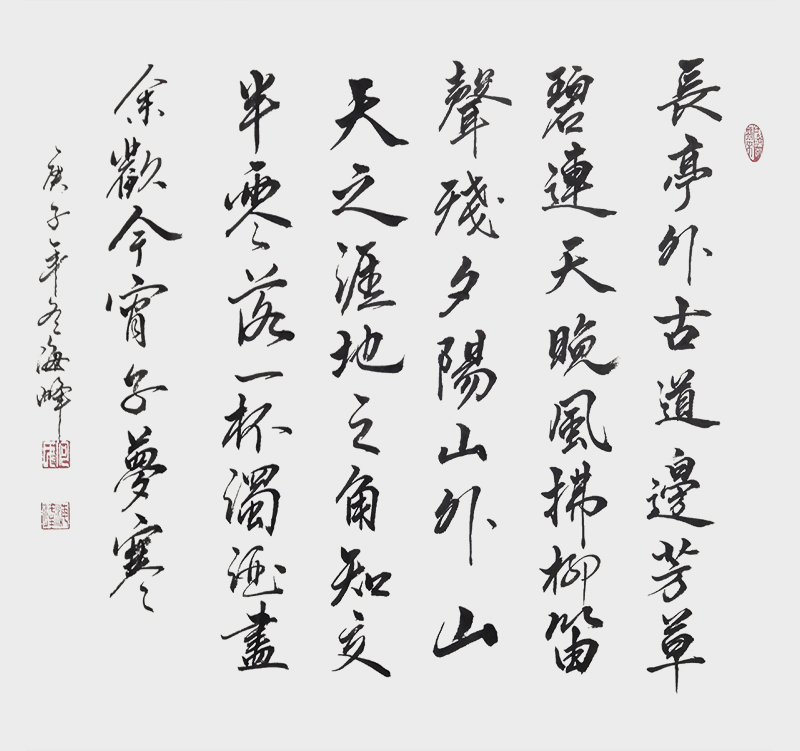 長亭外古道邊芳草
碧連天晚風拂柳笛
聲殘夕陽山外山
天之涯地之角知交
半零落一杯濁酒盡
余歡今宵別夢寒
庚子年冬海峰